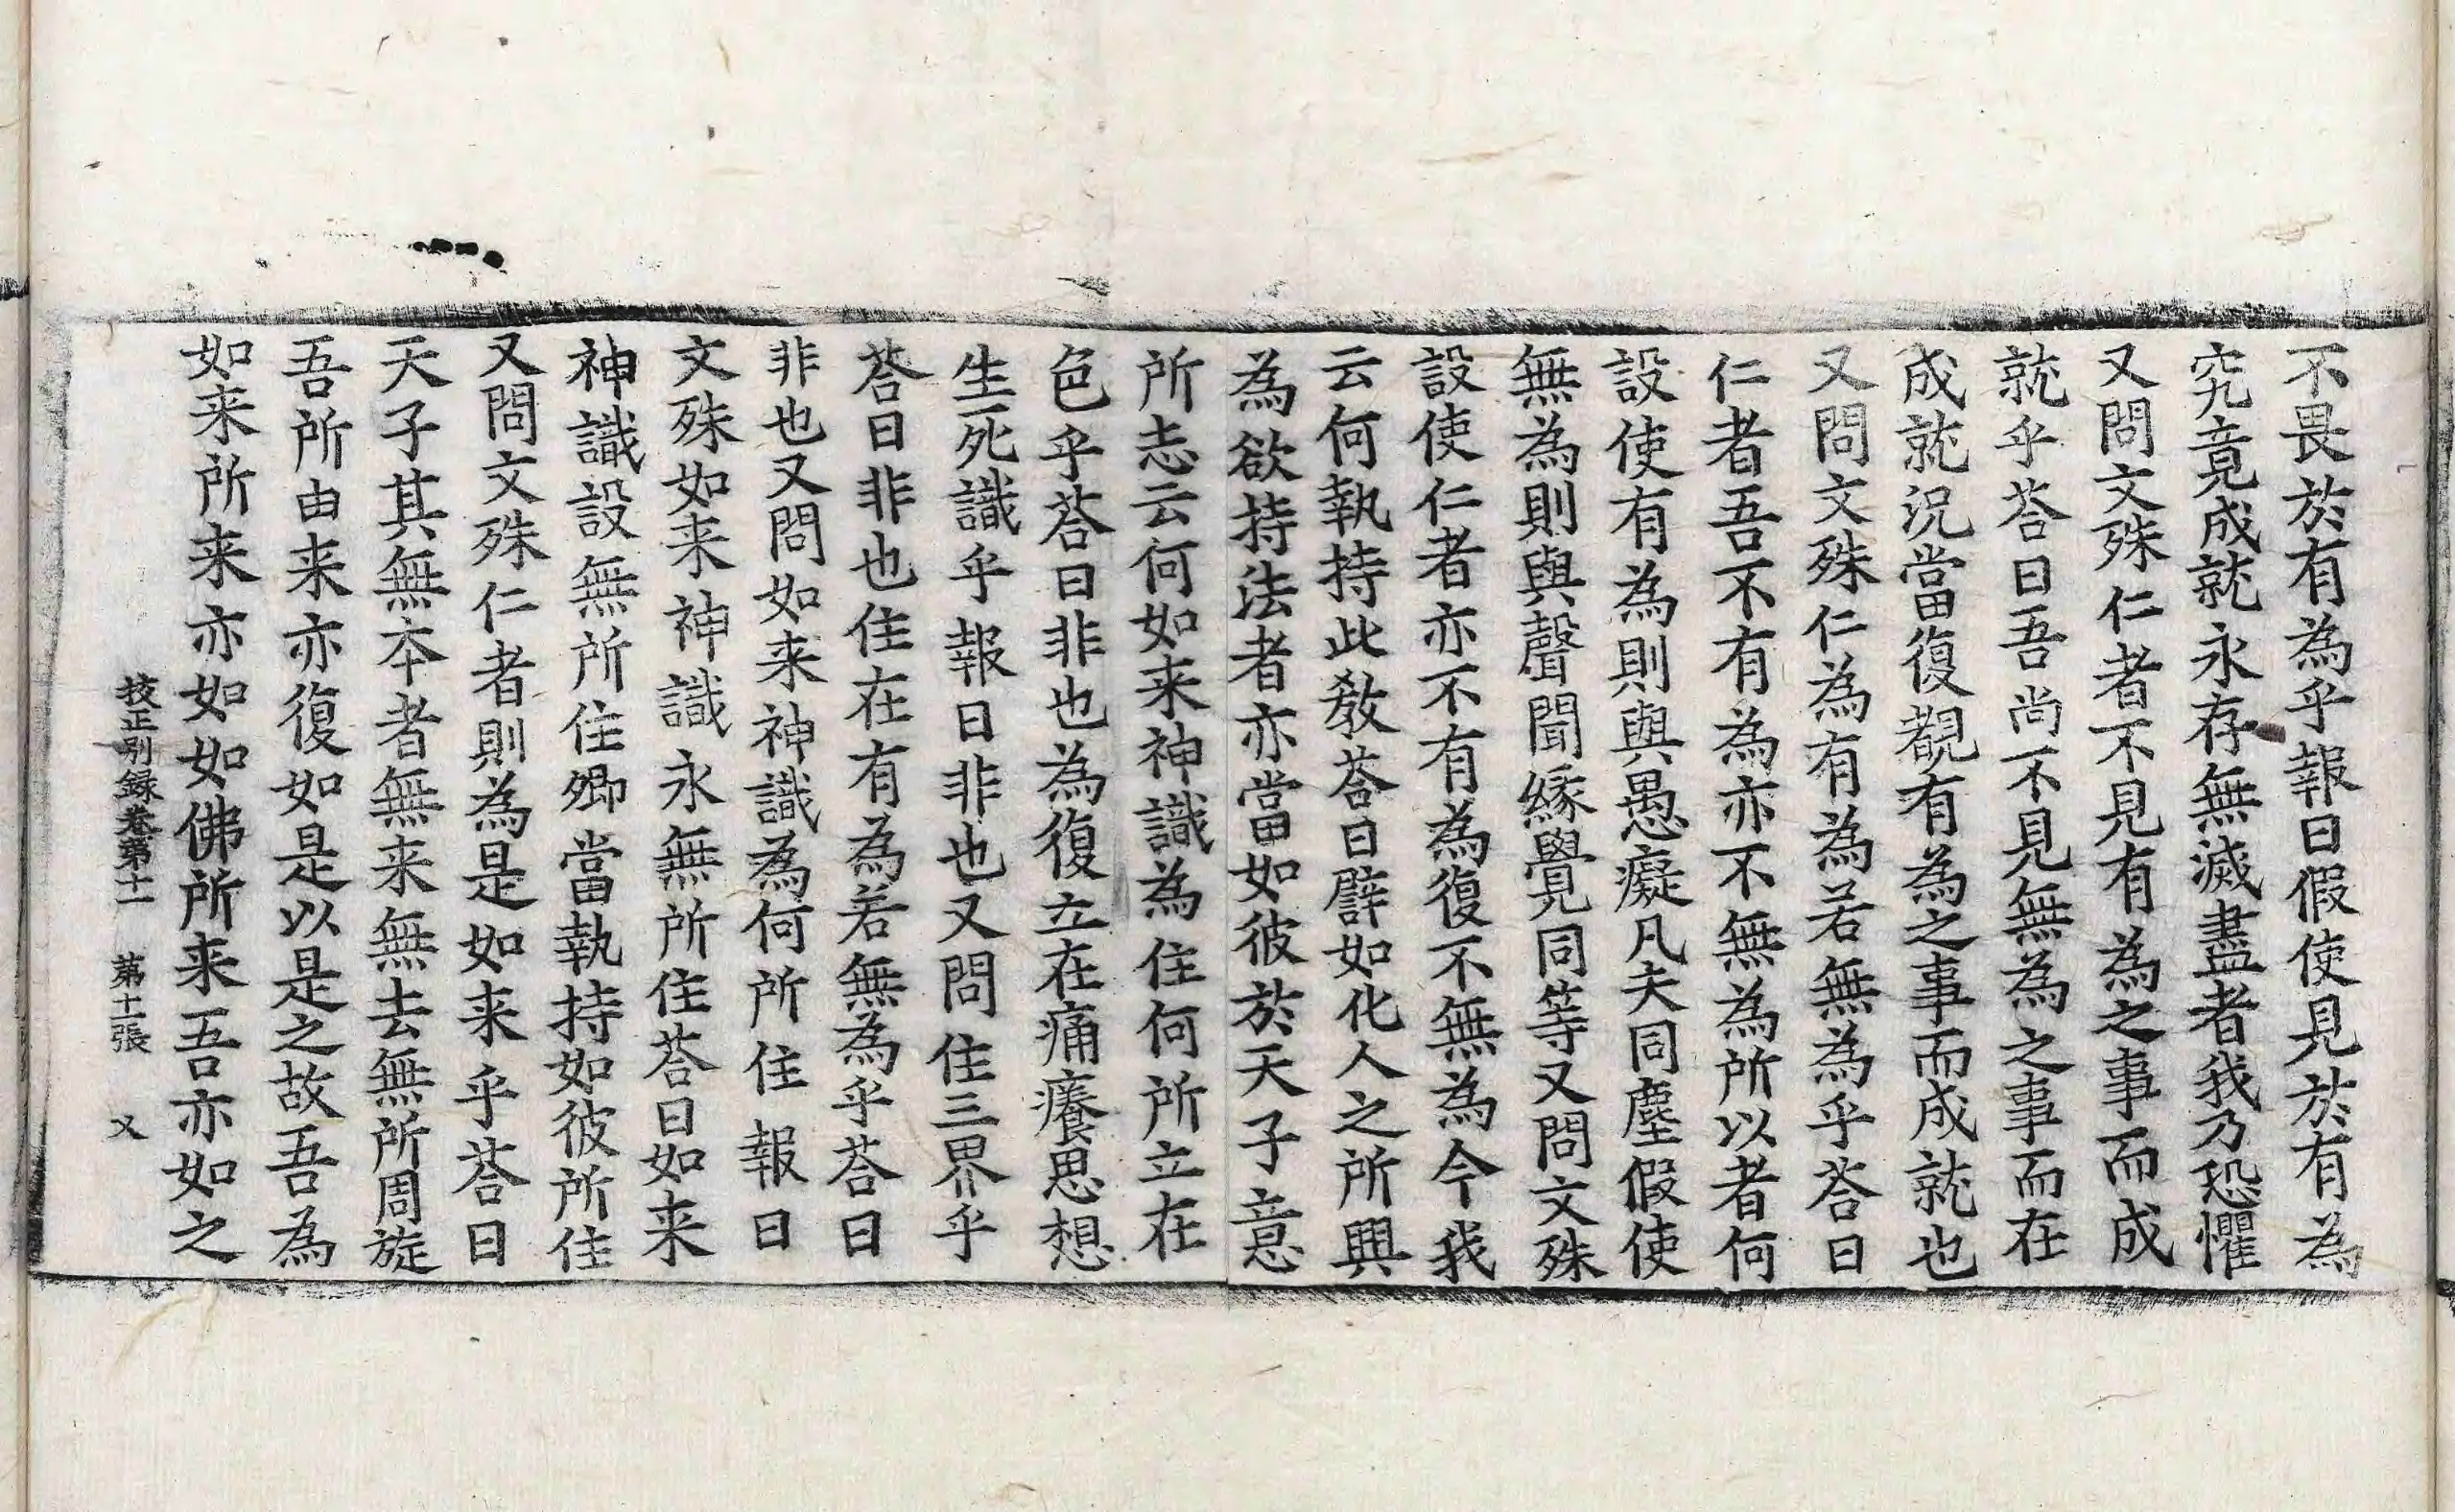 不畏於有為乎報曰假使見於有為
究竟成就永存無滅盡者我乃恐懼
又問文殊仁者不見有為之事而成
就乎荅曰吾尚不見無為之事而在
成就況當復覩有為之事而成就也
又問文殊仁為有為若無為乎荅曰
仁者吾不有為亦不無為所以者何
設使有為則與愚癡凡夫同塵假使
無為則與聲聞緣覺同等又問文殊
設使仁者亦不有為復不無為今我
云何執持此教荅曰譬如化人之所興
為欲持法者亦當如彼於天子意
所志云何如来神識為住何所立在
色乎荅曰非也為復立在痛癢思想
生死識乎報曰非也又問住三界乎
荅曰非也住在有為若無為乎荅曰
非也又問如来神識為何所住報曰
文殊如来神識永無所住荅曰如来
神識設無所住卿當執持如彼所住
又問文殊仁者則為是如来乎荅曰
天子其無本者無来無去無所周旋
吾所由来亦復如是以是之故吾為
如来所来亦如如佛所来吾亦如之
挍正別録卷第十一 第十一張 乂